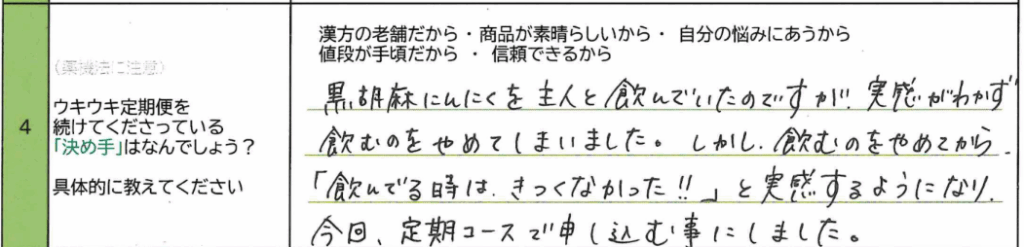 4
(薬機法に注意)
ウキウキ定期便を
続けてくださっている
「決め手」はなんでしょう?
具体的に教えてください
漢方の老舗だから・商品が素晴らしいから・ 自分の悩みにあうから
値段が手頃だから ・ 信頼できるから
黒胡麻にんにくを主人と飲んでいたのですが、実感がわかず
飲むのをやめてしまいました。しかし、飲むのをやめてから、
「飲んでる時は、きつくなかった!!」と実感するようになり、
今回、定期コースで申し込む事にしました。